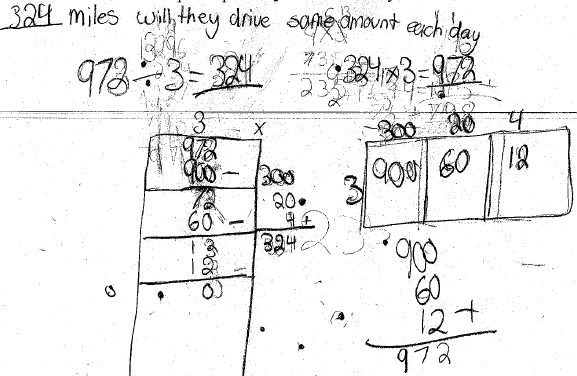 324 miles will they drive same amount each day
972 ÷ 3 = 324
324 x 3 = 972
3 x
972
900 - 300
72 20
60 - 4 +
12 324
12 -
0
300 20 4
3 900 60 12
900
60
12 +
972